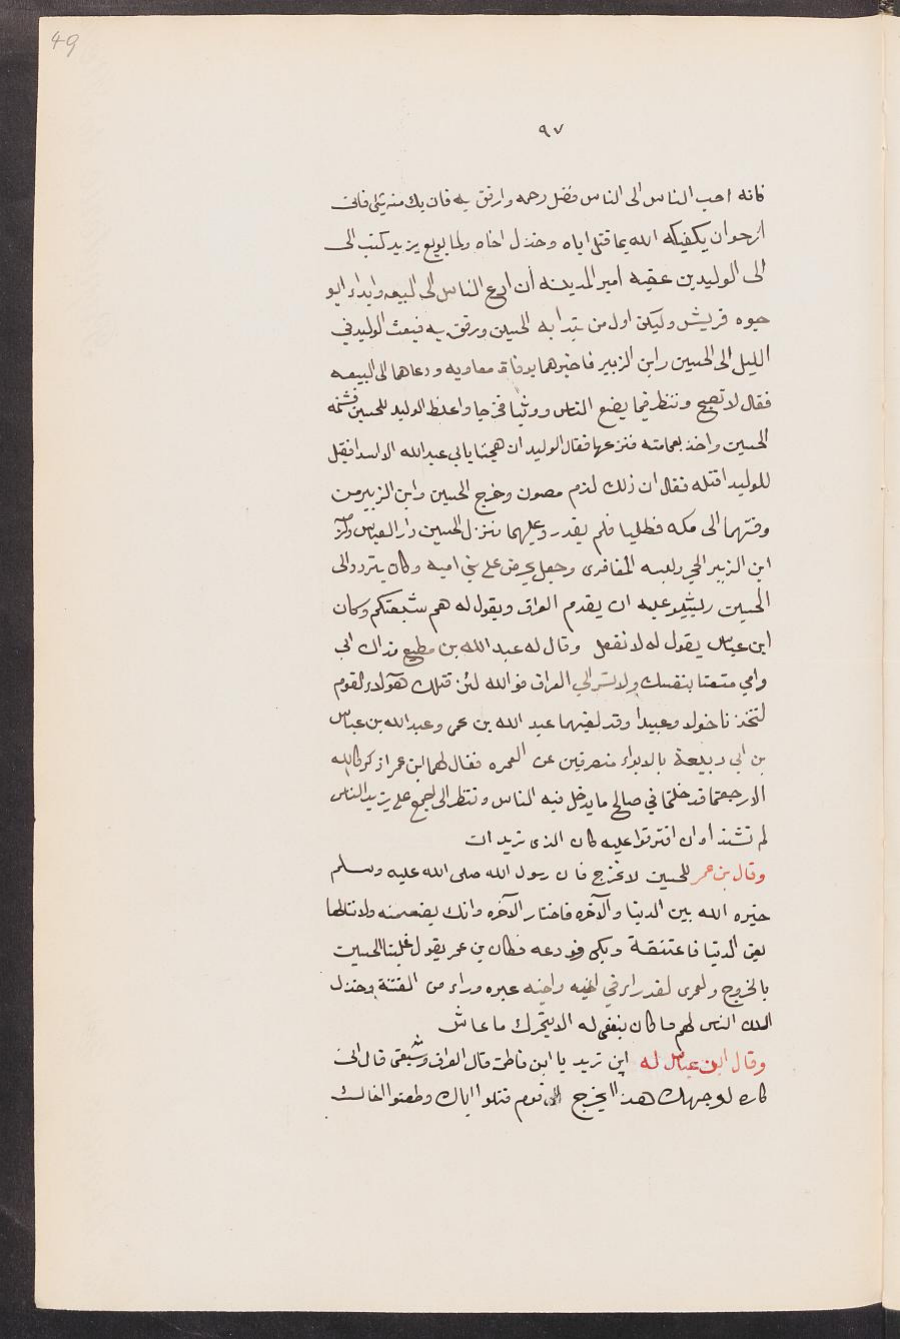 49
٩٧
فانه احب الناس الى الناس فضل رحمه وارفق به فان يك منه شئ فانى
ارجوان يكفيكه الله بما قتل اباه وخذل اخاه ولما بويع يزيد كتب الى
الى الوليد بن عقبه امير المدينه أن ادع الناس الى البيعه وابداء
حيوه قريش وليكن اول من تبدا به الحسين ورفق به فبعث الوليد في
الليل الى الحسين وابن الزبير فاخبرهما بوفاة معاويه ودعاهما الى البيعه
فقال لا نصبح وننظر فيما يصنع الناس ووثبا فخرجا واغلظ الوليد للحسين فشتمه
الحسين واخذ بعمامته فنزعها فقال الوليد ان هجنا بابى عبد الله الا اسدا فقيل
للوليد اقتله فقال ان ذلك لدم مصون وخرج الحسين وابن الزبير من
وقتهما الى مكه فطلبا فلم يقدر عليهما فنزل الحسين دار العباس ولزم
ابن الزبير الحجر ولبس المغافرى وجعل يحرض على بني اميه وكان يتردد الى
الحسين ويشير عليه ان يقدم العراق ويقول له هم شيعتكم وكان
ابن عباس يقول له لا تفعل وقال له عبد الله بن مطيع فداك ابى
وامي متعنا بنفسك ولا تسر الى العراق فوالله لئن قتلك هؤلاء القوم
لتخذنا خولا وعبيدا وقد لقيهما عبد الله بن عمر وعبد الله بن عباس
بن ابى ربيعة بالابواء منصرفين من العمره فقال لهما ابن عمر اذكركما الله
الا رجعتما فدخلتما في صالح ما يدخل فيه الناس وننتظر الى اجمع على يزيد الناس
لم تشذا وان افترقوا عليه كان الذى تريدان
وقال بن عمر للحسين لا تخرج فان رسول الله صلى الله عليه وسلم
خيره الله بين الدنيا والآخره فاختار الآخره وانك بضعه منه ولا تنالها
يعنى الدنيا فاعتنقه وبكى فودعه فكان بن عمر يقول غلبنا الحسين
بالخروج ولعمرى لقد راى في ابيه واخيه عبره وراى من الفتنة وخذل
الناس لهم ما كان ينبغى له الا يتحرك ما عاش
وقال ابن عباس له اين تريد يا ابن فاطمة قال العراق وشيعتى قال انى
كاره لوجهك هذا يخرج الى قوم قتلوا اباك وطعنوا اخاك